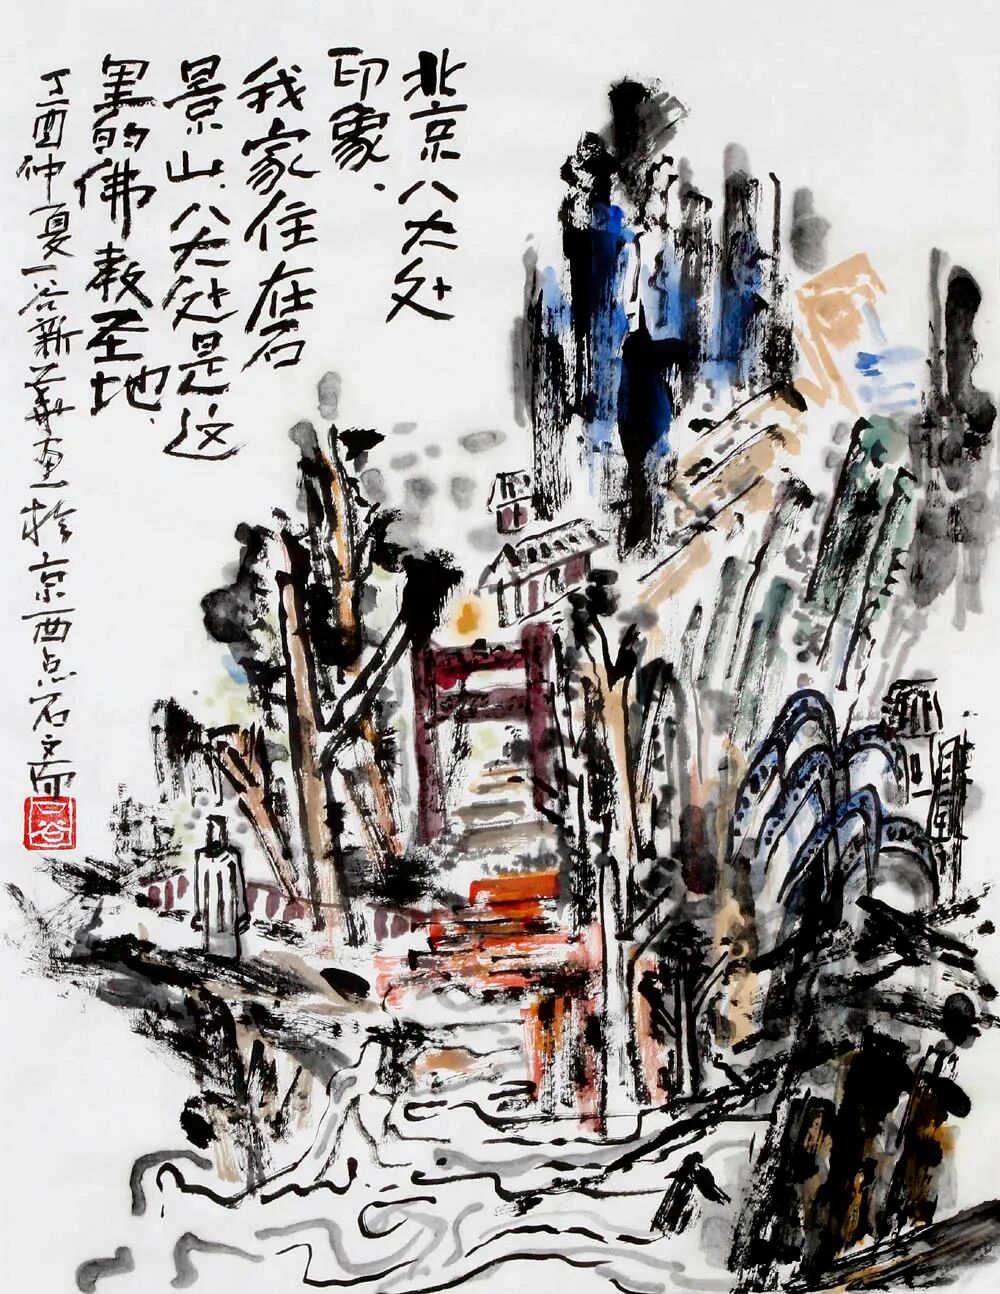 北京八大处
印象、
我家住在石
景山、八大处是这
里的佛教圣地、
丁酉仲夏一谷新华画于京西点石斋
一谷